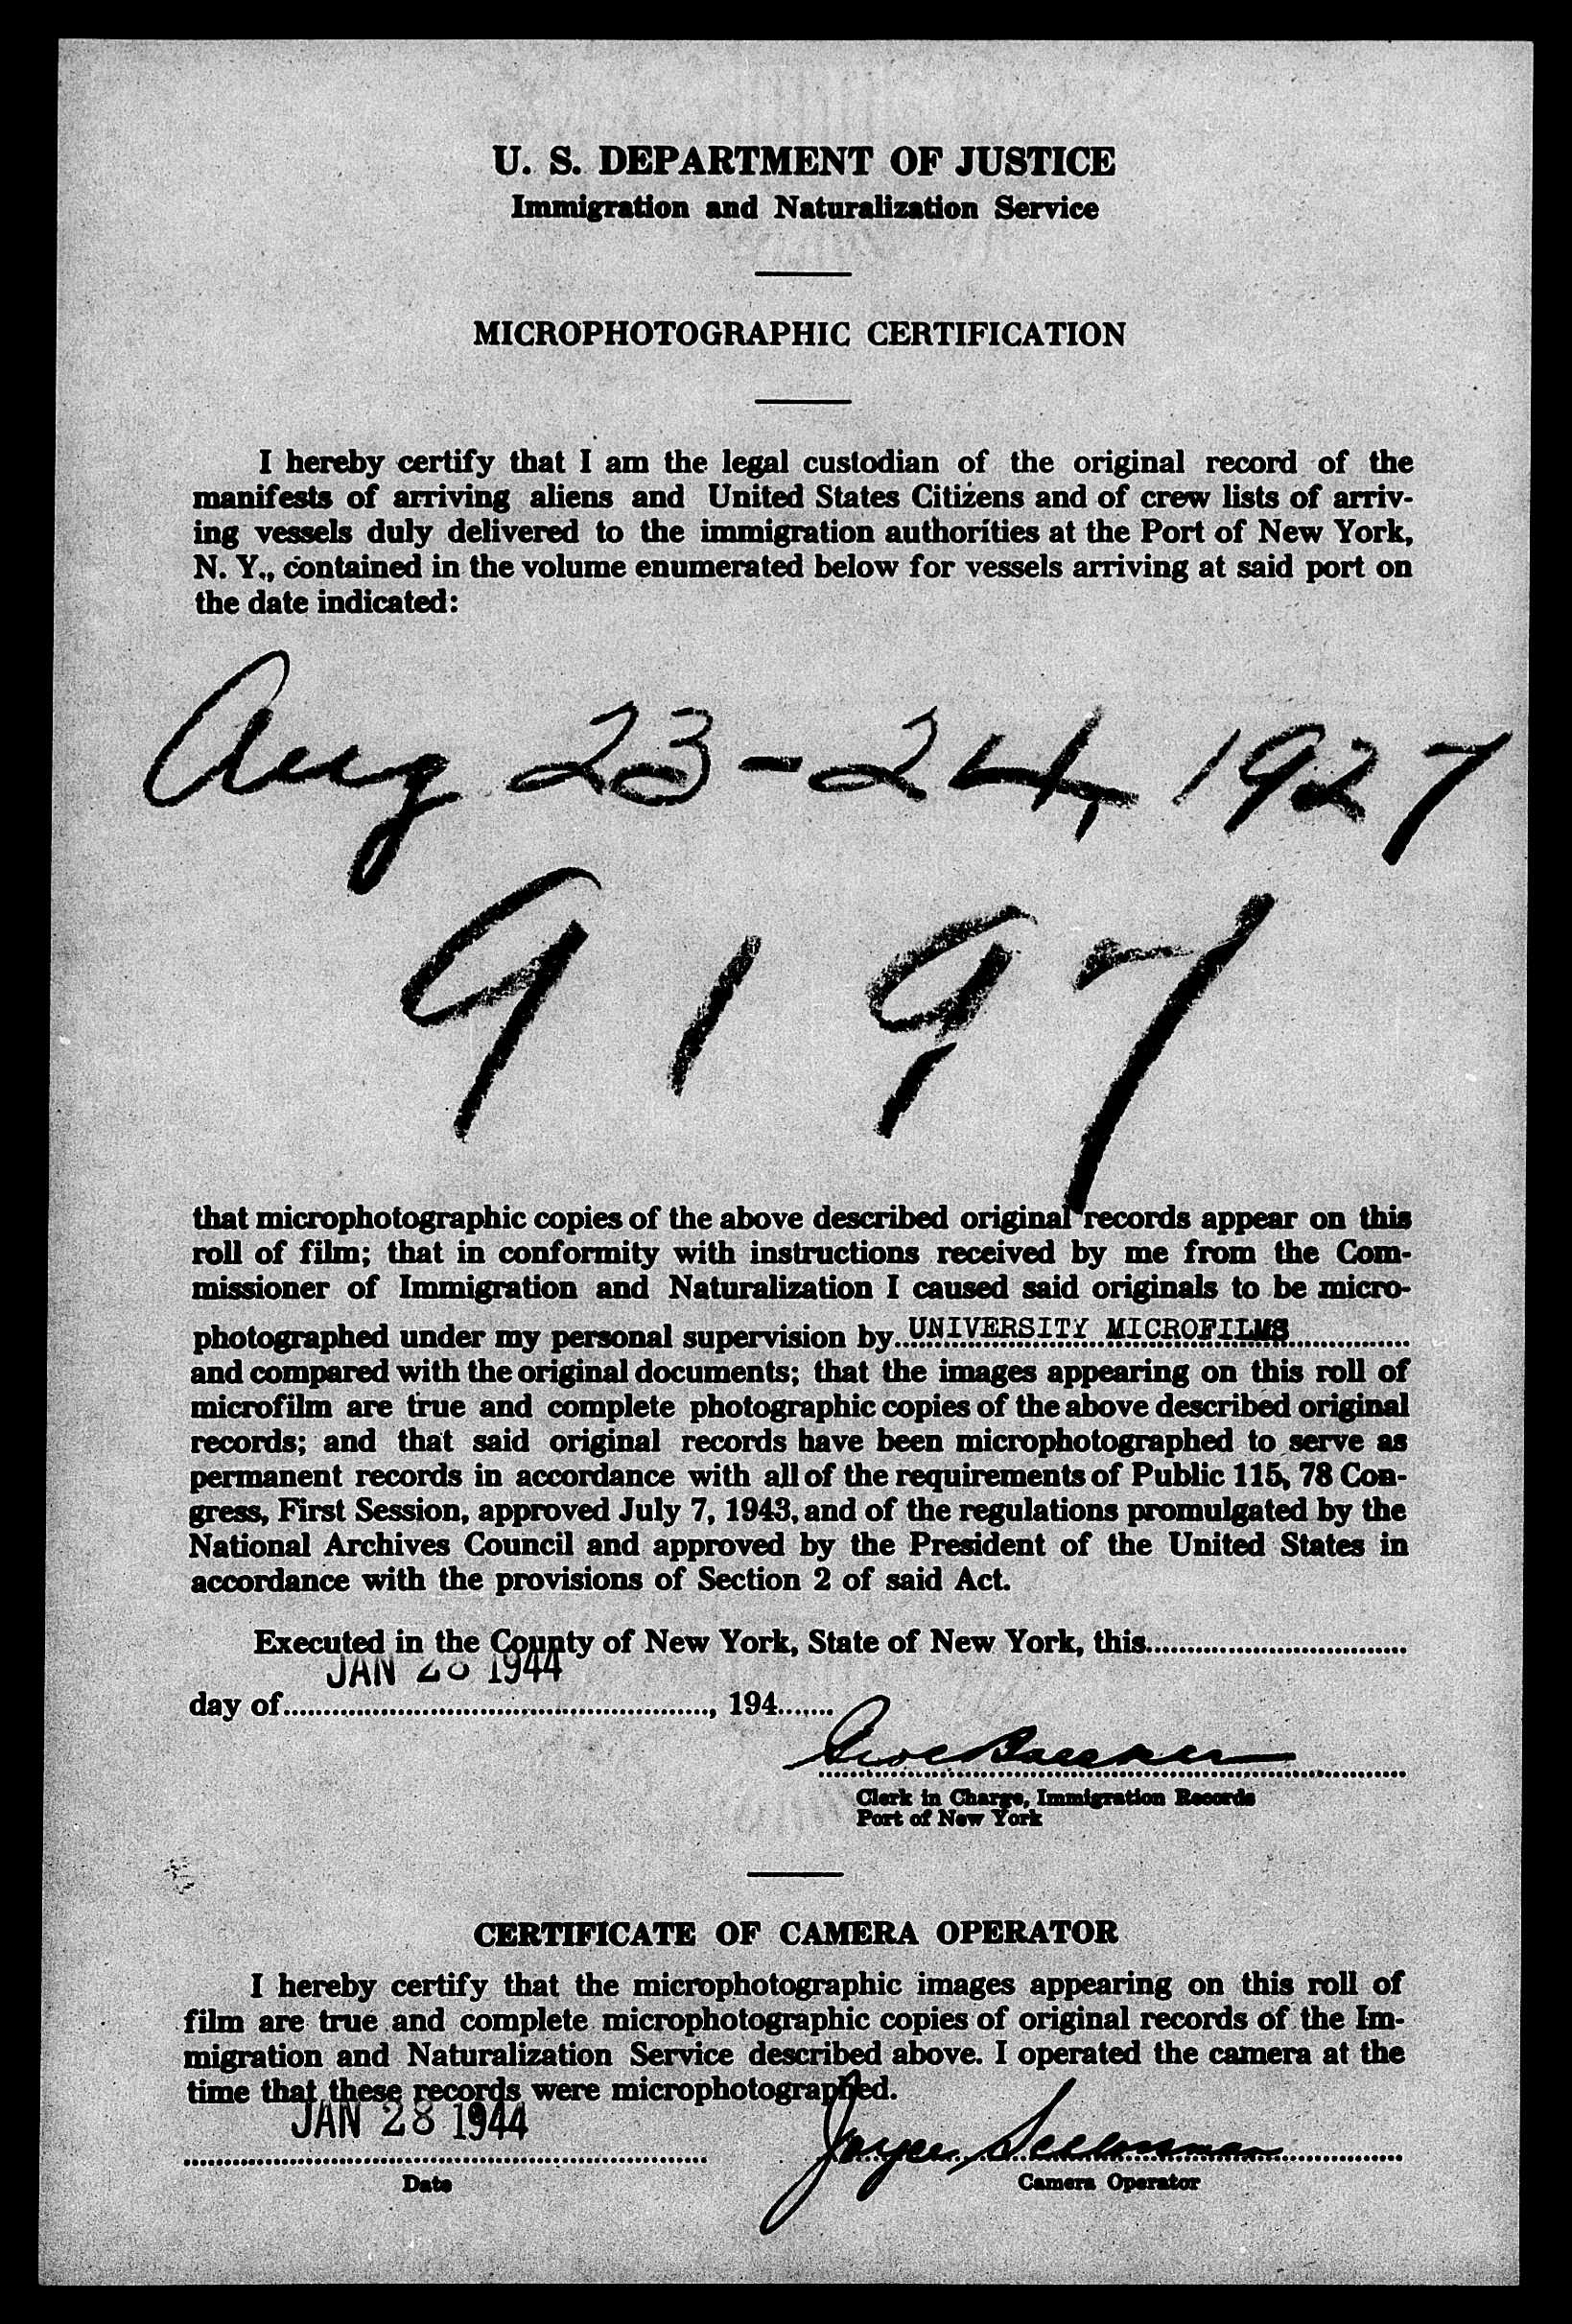 U. S. DEPARTMENT OF JUSTICE
Immigration and Naturalization Service
MICROPHOTOGRAPHIC CERTIFICATION
I hereby certify that I am the legal custodian of the original record of the
manifests of arriving aliens and United States Citizens and of crew lists of arriv-
ing vessels duly delivered to the immigration authorities at the Port of New York,
N. Y., contained in the volume enumerated below for vessels arriving at said port on
the date indicated:
Aug 23-24, 1927
9197
that microphotographic copies of the above described original records appear on this
roll of film; that in conformity with instructions received by me from the Com-
missioner of Immigration and Naturalization I caused said originals to be micro-
photographed under my personal supervision by UNIVERSITY MICROFILMS
and compared with the original documents; that the images appearing on this roll of
microfilm are true and complete photographic copies of the above described original
records; and that said original records have been microphotographed to serve as
permanent records in accordance with all of the requirements of Public 115, 78 Con-
gress, First Session, approved July 7, 1943, and of the regulations promulgated by the
National Archives Council and approved by the President of the United States in
accordance with the provisions of Section 2 of said Act.
Executed in the County of New York, State of New York, this
JAN 28 1944
day of, 194
Clerk in Charge, Immigration Records
Port of New York
CERTIFICATE OF CAMERA OPERATOR
I hereby certify that the microphotographic images appearing on this roll of
film are true and complete microphotographic copies of original records of the Im-
migration and Naturalization Service described above. I operated the camera at the
time that these records were microphotographed.
JAN 28 1944
Joyce
Date
Camera Operator